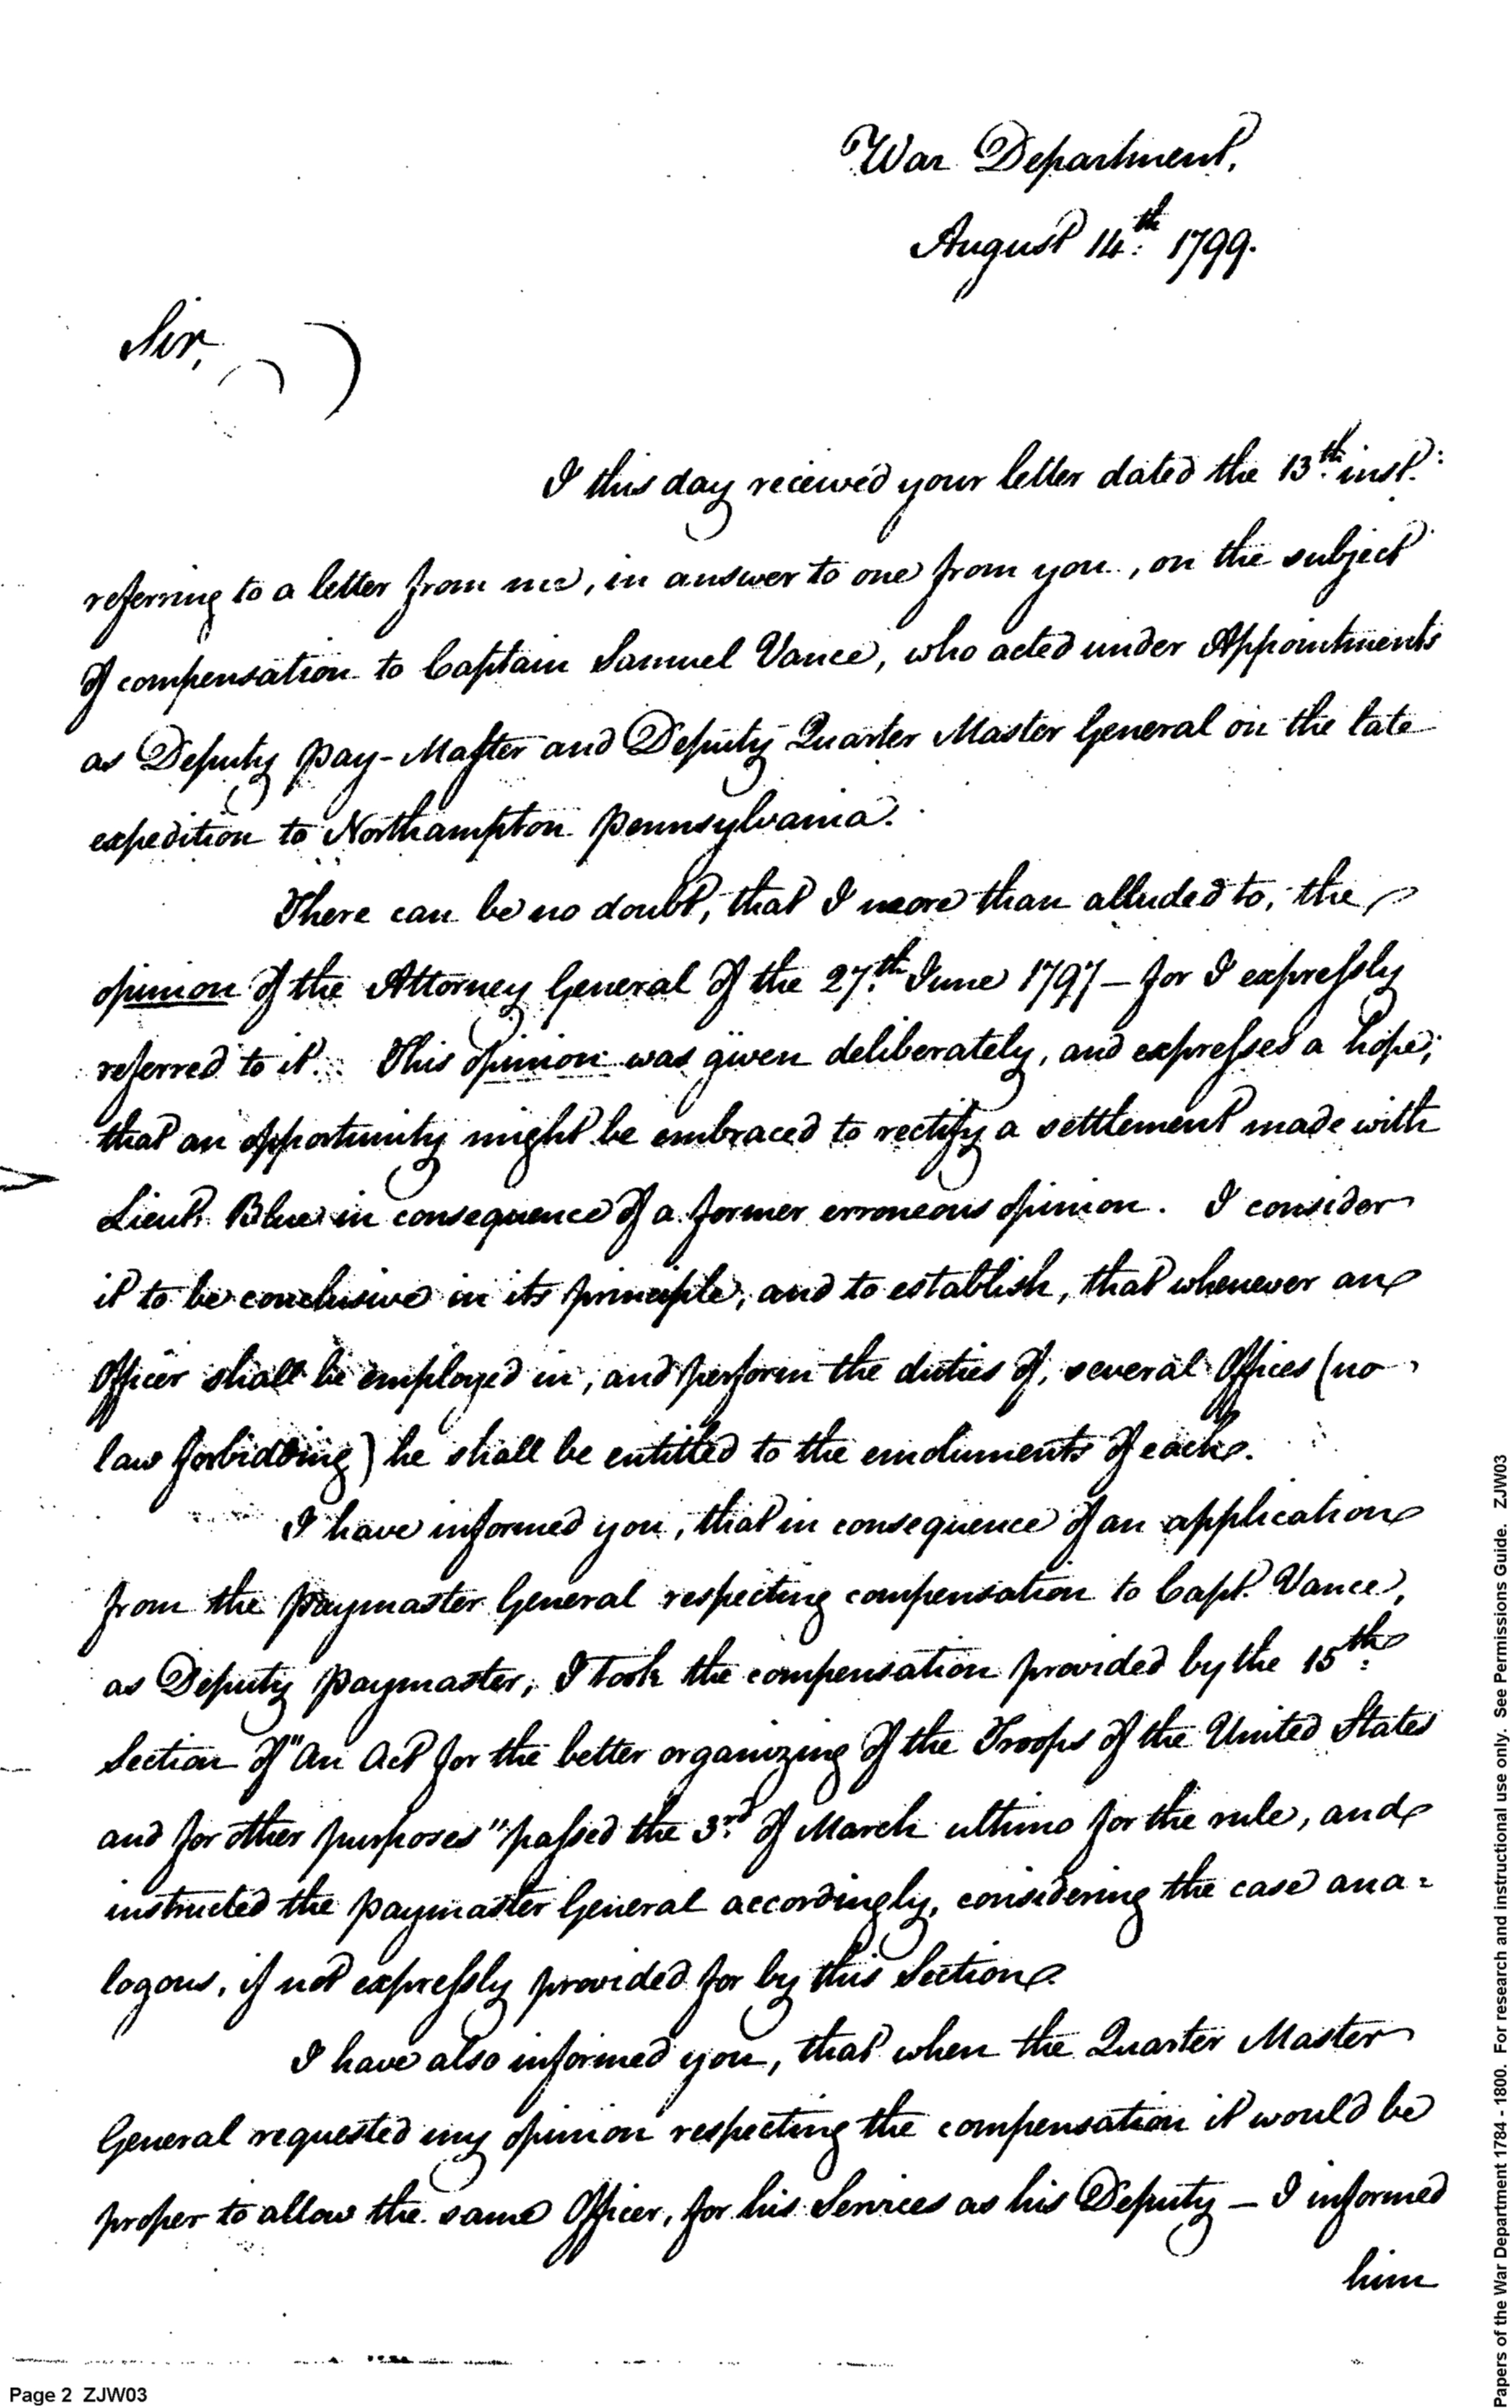 War Department,
August 14th. 1799.
Sir,
I this day received your letter dated the 13th. inst.
referring to a letter from me, in answer to one from you, on the subject
of compensation to Captain Samuel Vance, who acted under Appointments
as Deputy Pay-Master and Deputy Quarter Master General on the late
expedition to Northampton Pennsylvania.
There can be no doubt, that I more than alluded to, the
opinion of the Attorney General of the 27th. June 1797 – for I expressly
referred to it. This opinion was given deliberately, and expresses a hope,
that an opportunity might be embraced to rectify a settlement made with
Lieut. Blue in consequence of a former erroneous opinion. I consider
it to be conclusive in its principle, and to establish, that whenever an
Officer shall be employed in, and perform the duties of, several Offices (no
law forbidding) he shall be entitled to the emoluments of each.
I have informed you, that in consequence of an application
from the Paymaster General respecting compensation to Capt. Vance,
as Deputy Paymaster, I took the compensation provided by the 15th.
Section of "An Act for the better organizing of the Troops of the United States
and for other purposes" passed the 3rd. of March ultimo for the rule, and
instructed the Paymaster General accordingly, considering the case ana=
logous, if not expressly provided for by this Section.
I have also informed you, that when the Quarter Master
General requested my opinion respecting the compensation it would be
proper to allow the same Officer, for his Services as his Deputy – I informed
him
Page 2 ZJW03
Papers of the War Department 1784 - 1800. For research and instructional use only. See Permissions Guide. ZJW03